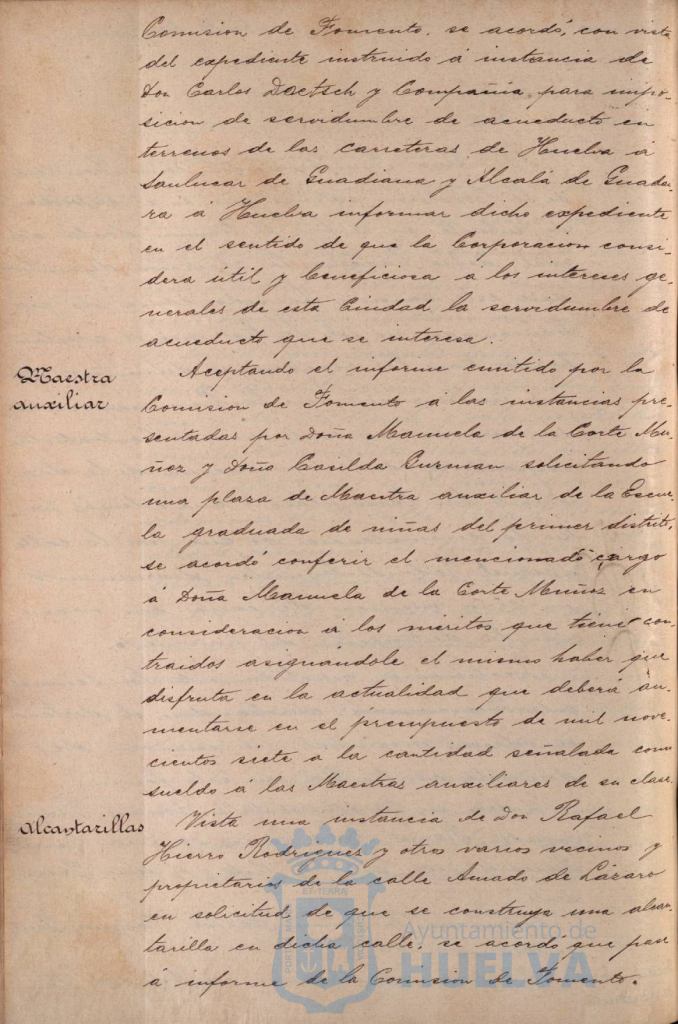 Comision de Fomento, se acordó, con vista
del expediente instruido á instancia de
Don Carlos Doetsch y Compañia para impo-
sicion de servidumbre de acueducto en
terrenos de las carreteras de Huelva á
Sanlucar de Guadiana y Alcalá de Guada-
ra á Huelva informar dicho expediente
en el sentido de que la Corporacion consi-
dera útil y beneficiosa á los intereses ge-
nerales de esta Ciudad la servidumbre de
acueducto que se interesa.
Maestra
auxiliar
Aceptando el informe emitido por la
Comision de Fomento á las instancias pre-
sentadas por Doña Manuela de la Corte Mu-
ñoz y Doña Casilda Guzman solicitando
una plaza de Maestra auxiliar de la Escue-
la graduada de niñas del primer distrito,
se acordó conferir el mencionado cargo
á Doña Manuela de la Corte Muñoz en
consideracion á los méritos que tiene con-
traidos asignándole el mismo haber que
disfruta en la actualidad que deberá au-
mentarse en el presupuesto de mil nove-
cientos siete a la cantidad señalada como
sueldo á las Maestras auxiliares de su clase.
Alcantarillas
Vista una instancia de Don Rafael
Hierro Rodriguez y otros varios vecinos y
propietarios de la calle Amado de Lázaro
en solicitud de que se construya una alcan-
tarilla en dicha calle, se acordó que pase
á informe de la Comision de Fomento.
Ayuntamiento de
HUELVA